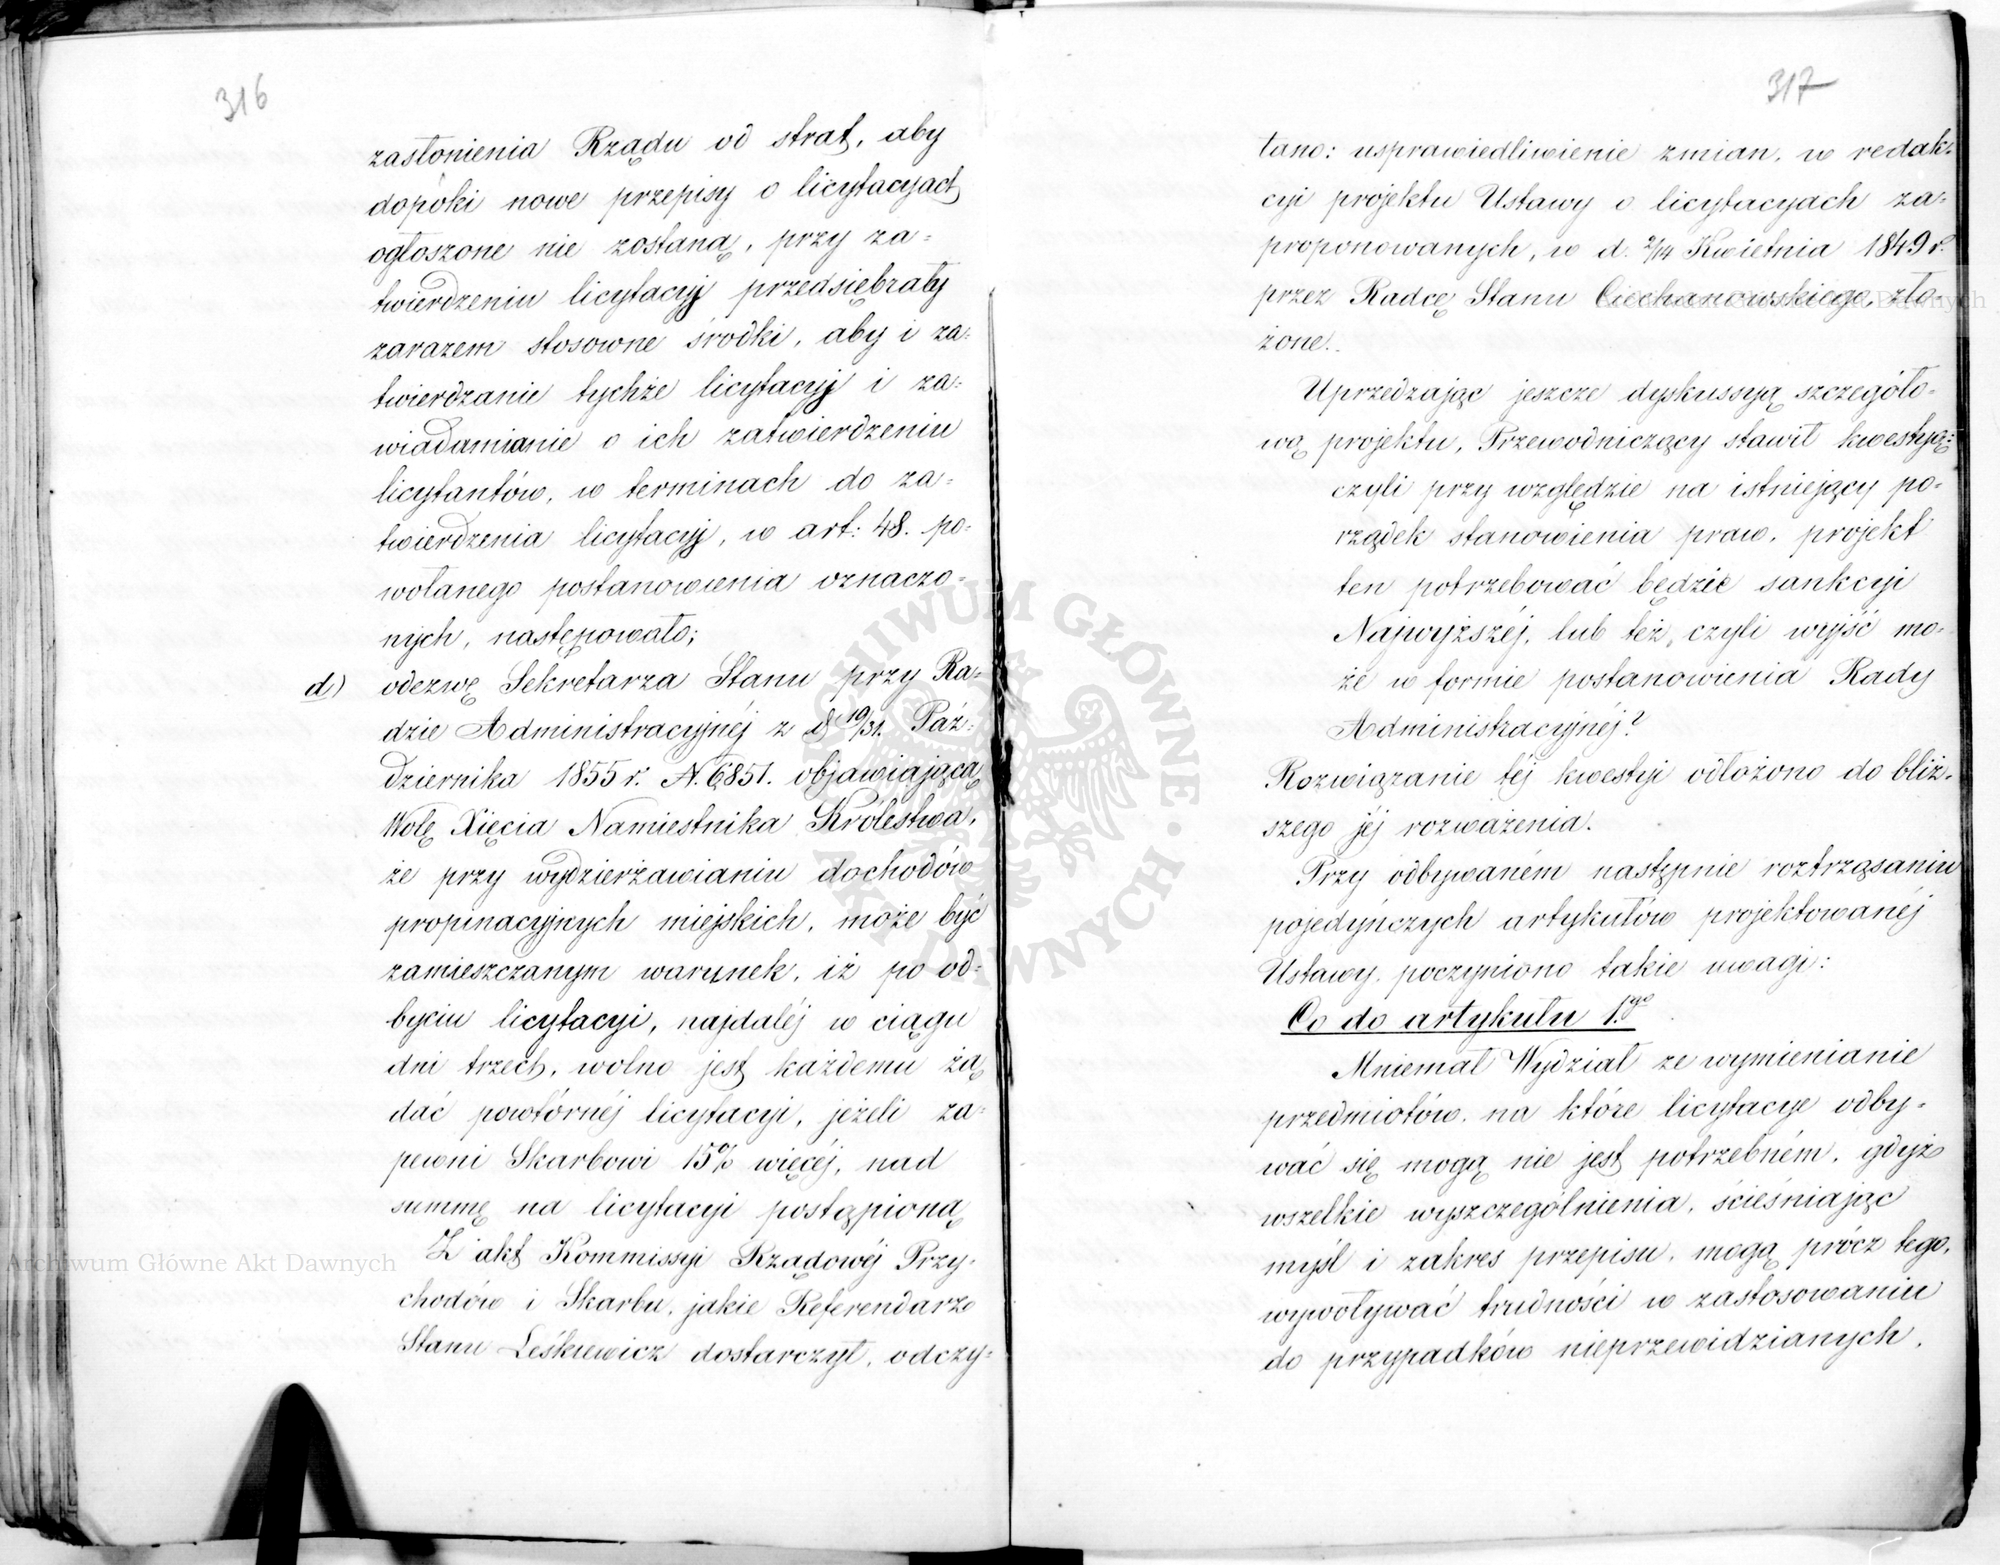 316
zasłonienia Rządu od strat, aby
dopóki nowe przepisy o licytacyach
ogłoszone nie zostaną, przy za=
twierdzeniu licytacyj przedsiębrały
zarazem stosowne środki, aby i za=
twierdzanie tychże licytacyj i za=
wiadamianie o ich zatwierdzeniu
licytantów, w terminach do za=
twierdzenia licytacyj, w art: 48. po=
wołanego postanowienia oznaczo=
nych, następowało;
d) odezwę Sekretarza Stanu przy Ra=
dzie Administracyjnéj z d. 19/31. Paź=
dziernika 1855 r. N. 6851. objawiającą
Wolę Xięcia Namiestnika Królestwa,
że przy wydzierżawianiu dochodów
propinacyjnych miejskich, może być
zamieszczanym warunek, iż po od=
byciu licytacyi, najdaléj w ciągu
dni trzech, wolno jest każdemu żą
dać powtórnéj licytacyi, jeżeli za=
pewni Skarbowi 15% więcéj, nad
summę na licytacyi postąpioną
Z akt Kommissyi Rządowéj Przy=
chodów i Skarbu, jakie Referendarz
Stanu Leśkiewicz dostarczył, odczy=
317
tano: usprawiedliwienie zmian, w redak=
cyi projektu Ustawy o licytacyach za=
proponowanych, w d. 2/14 Kwietnia 1849 r.
przez Radcę Stanu Ciechanowskiego, zło=
żone.
Uprzedzając jeszcze dyskussyą szczegóło=
wą projektu, Przewodniczący stawił kwestyą:
czyli przy względzie na istniejący po=
rządek stanowienia praw, projekt
ten potrzebować będzie sankcyi
Najwyższéj, lub też, czyli wyjść mo=
że w formie postanowienia Rady
Administracyjnéj?
Rozwiązanie téj kwestyi odłożono do bliż=
szego jéj rozważenia.
Przy odbywaném następnie roztrząsaniu
pojedyńczych artykułów projektowanéj
Ustawy, poczyniono takie uwagi:
Co do artykułu 1.go
Mniemał Wydział że wymienianie
przedmiotów, na które licytacye odby=
wać się mogą nie jest potrzebném, gdyż
wszelkie wyszczególnienia, ścieśniając
myśl i zakres przepisu, mogą prócz tego,
wywoływać trudności w zastosowaniu
do przypadków nieprzewidzianych.
Archiwum Główne Akt Dawnych
Archiwum Główne Akt Dawnych
ARCHIWUM GŁÓWNE AKT DAWNYCH